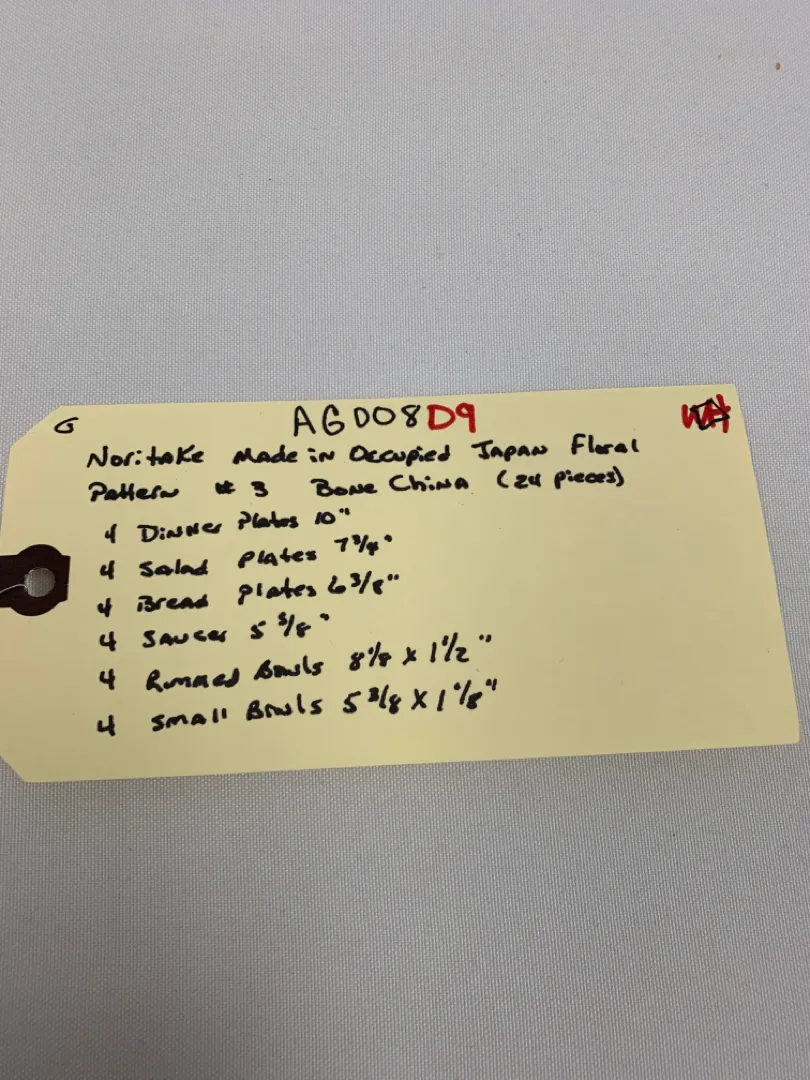 G AGD08D9
Noritake Made in Occupied Japan Floral
Pattern # 3 Bone China (24 pieces)
4 Dinner Plates 10"
4 Salad Plates 7 3/4"
4 Bread Plates 6 3/8"
4 Saucer 5 5/8"
4 Rimmed Bowls 8 1/8 x 1 1/2"
4 Small Bowls 5 3/8 x 1 1/8"